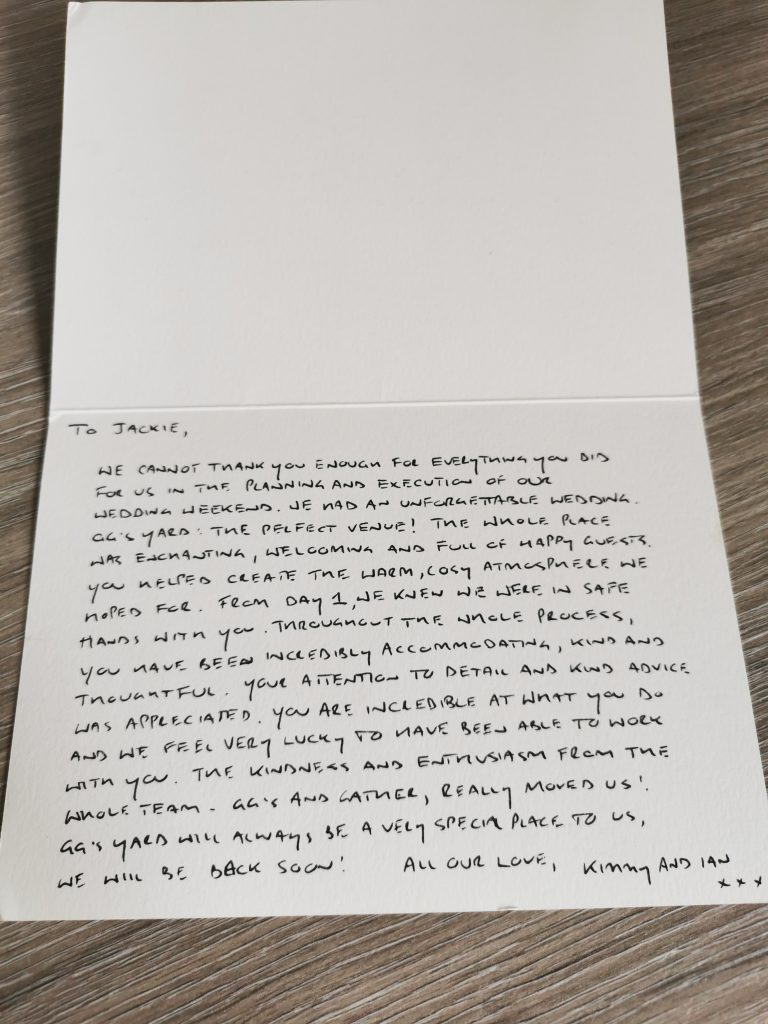 TO JACKIE,
WE CANNOT THANK YOU ENOUGH FOR EVERYTHING YOU DID
FOR US IN THE PLANNING AND EXECUTION OF OUR
WEDDING WEEKEND. WE HAD AN UNFORGETTABLE WEDDING.
GG'S YARD: THE PERFECT VENUE! THE WHOLE PLACE
WAS ENCHANTING, WELCOMING AND FULL OF HAPPY GUESTS.
YOU HELPED CREATE THE WARM, COSY ATMOSPHERE WE
HOPED FOR. FROM DAY 1, WE KNEW WE WERE IN SAFE
HANDS WITH YOU. THROUGHOUT THE WHOLE PROCESS,
YOU HAVE BEEN INCREDIBLY ACCOMMODATING, KIND AND
THOUGHTFUL. YOUR ATTENTION TO DETAIL AND KIND ADVICE
WAS APPRECIATED. YOU ARE INCREDIBLE AT WHAT YOU DO
AND WE FEEL VERY LUCKY TO HAVE BEEN ABLE TO WORK
WITH YOU. THE KINDNESS AND ENTHUSIASM FROM THE
WHOLE TEAM - GG'S AND GATHER, REALLY MOVED US!
GG'S YARD WILL ALWAYS BE A VERY SPECIAL PLACE TO US,
WE WILL BE BACK SOON! ALL OUR LOVE, KIMMY AND IAN
x x x